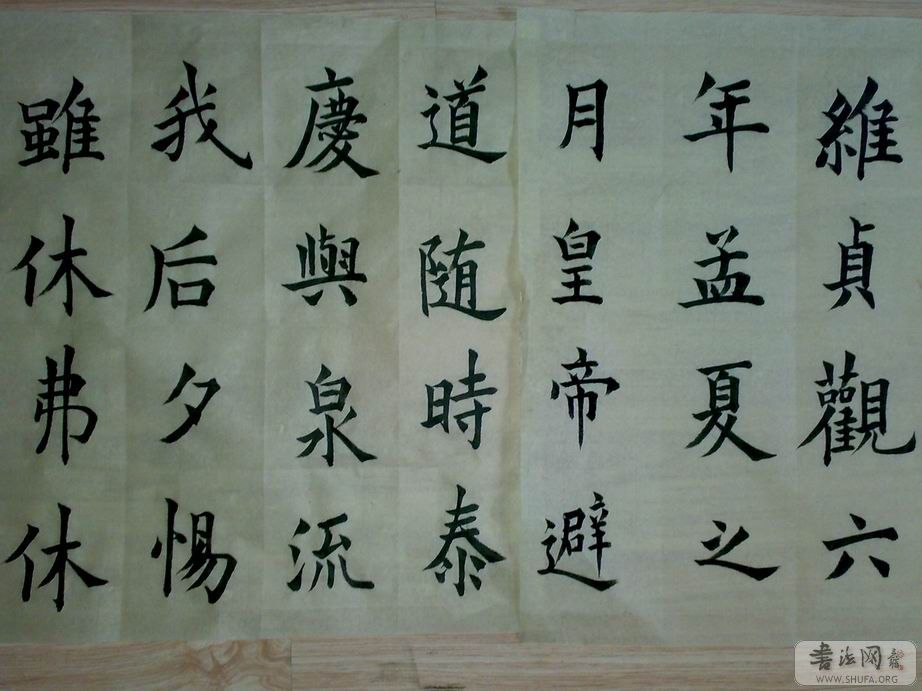 維貞觀六
年孟夏之
月皇帝避
道随時泰
慶與泉流
我后夕惕
雖休弗休
书法网
WWW.SHUFA.ORG